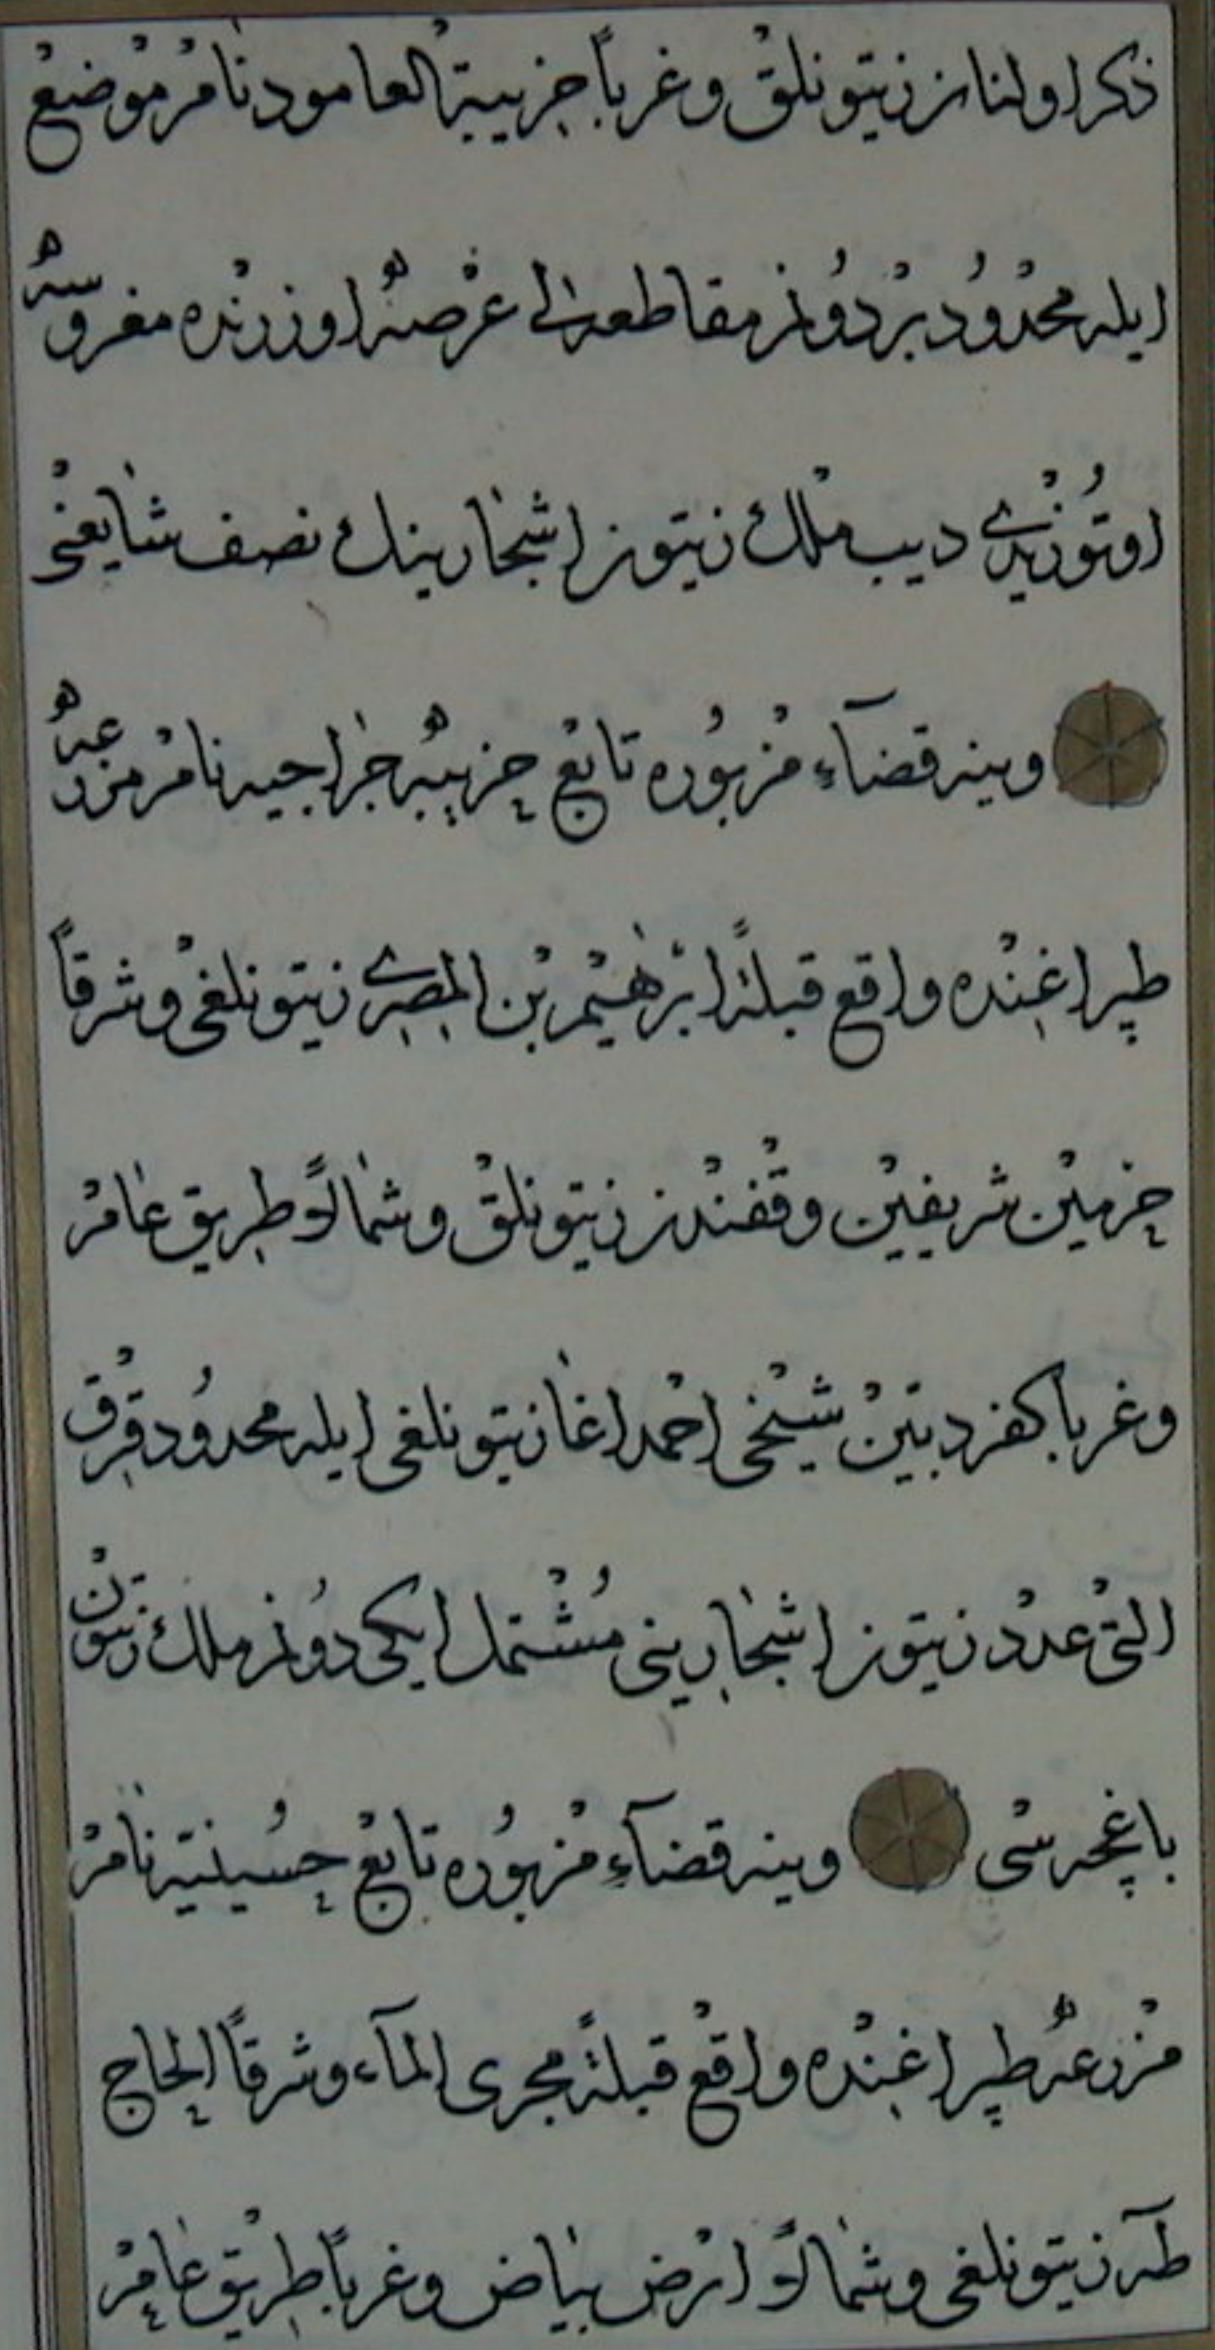 ذكر اولنان زيتونلق وغرباً جزيية العامود نام موضع
ايله محدود بر دونم مقاطعه لي عرصه اوزرنده مغروسه
اوتوز يدي ديب ملك زيتون اشجارينك نصف شايعى
وينه قضاء مزبوره تابع حزيبه جراجيه نام مزرعه
طپراغنده واقع قبلةً ابرهيم بن المصري زيتونلغى وشرقاً
حرمين شريفين وقفندن زيتونلق وشمالاً طريق عام
وغرباً كفر دبين شيخى احمد اغا زيتونلغى ايله محدود قرق
التى عدد زيتون اشجارينى مشتمل ايكى دونم ملك زيتون
باغچه سى وينه قضاء مزبوره تابع حسينيه نام
مزرعه طپراغنده واقع قبلةً مجرى الماء وشرقاً الحاج
طه زيتونلغى وشمالاً ارض بياض وغرباً طريق عام